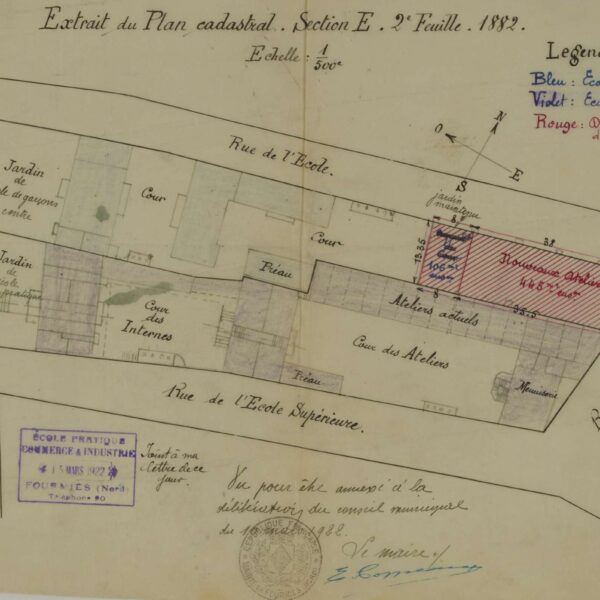 Extrait du Plan cadastral. Section E. 2e Feuille. 1882.
Echelle : 1/500e
Legen
Bleu : Eco
Violet : Ec
Rouge :
N
O
E
S
Rue de l'Ecole.
Jardin
de
garçons
centre
Cour
Cour
Préau
jardin
maintenu
8
38
13.35
Nouveaux Atelier
445
106
8
33.5
Jardin
de
pratique
Cour
des
Internes
Ateliers actuels
Cour des Ateliers
Préau
Menuiserie
Rue de l'Ecole Supérieure.
ÉCOLE PRATIQUE
COMMERCE & INDUSTRIE
15 MARS 1922
FOURMIES (Nord)
Téléphone 90
Joint à ma
lettre de ce
jour.
Vu pour être annexé à la
délibération du conseil municipal
du
Le maire